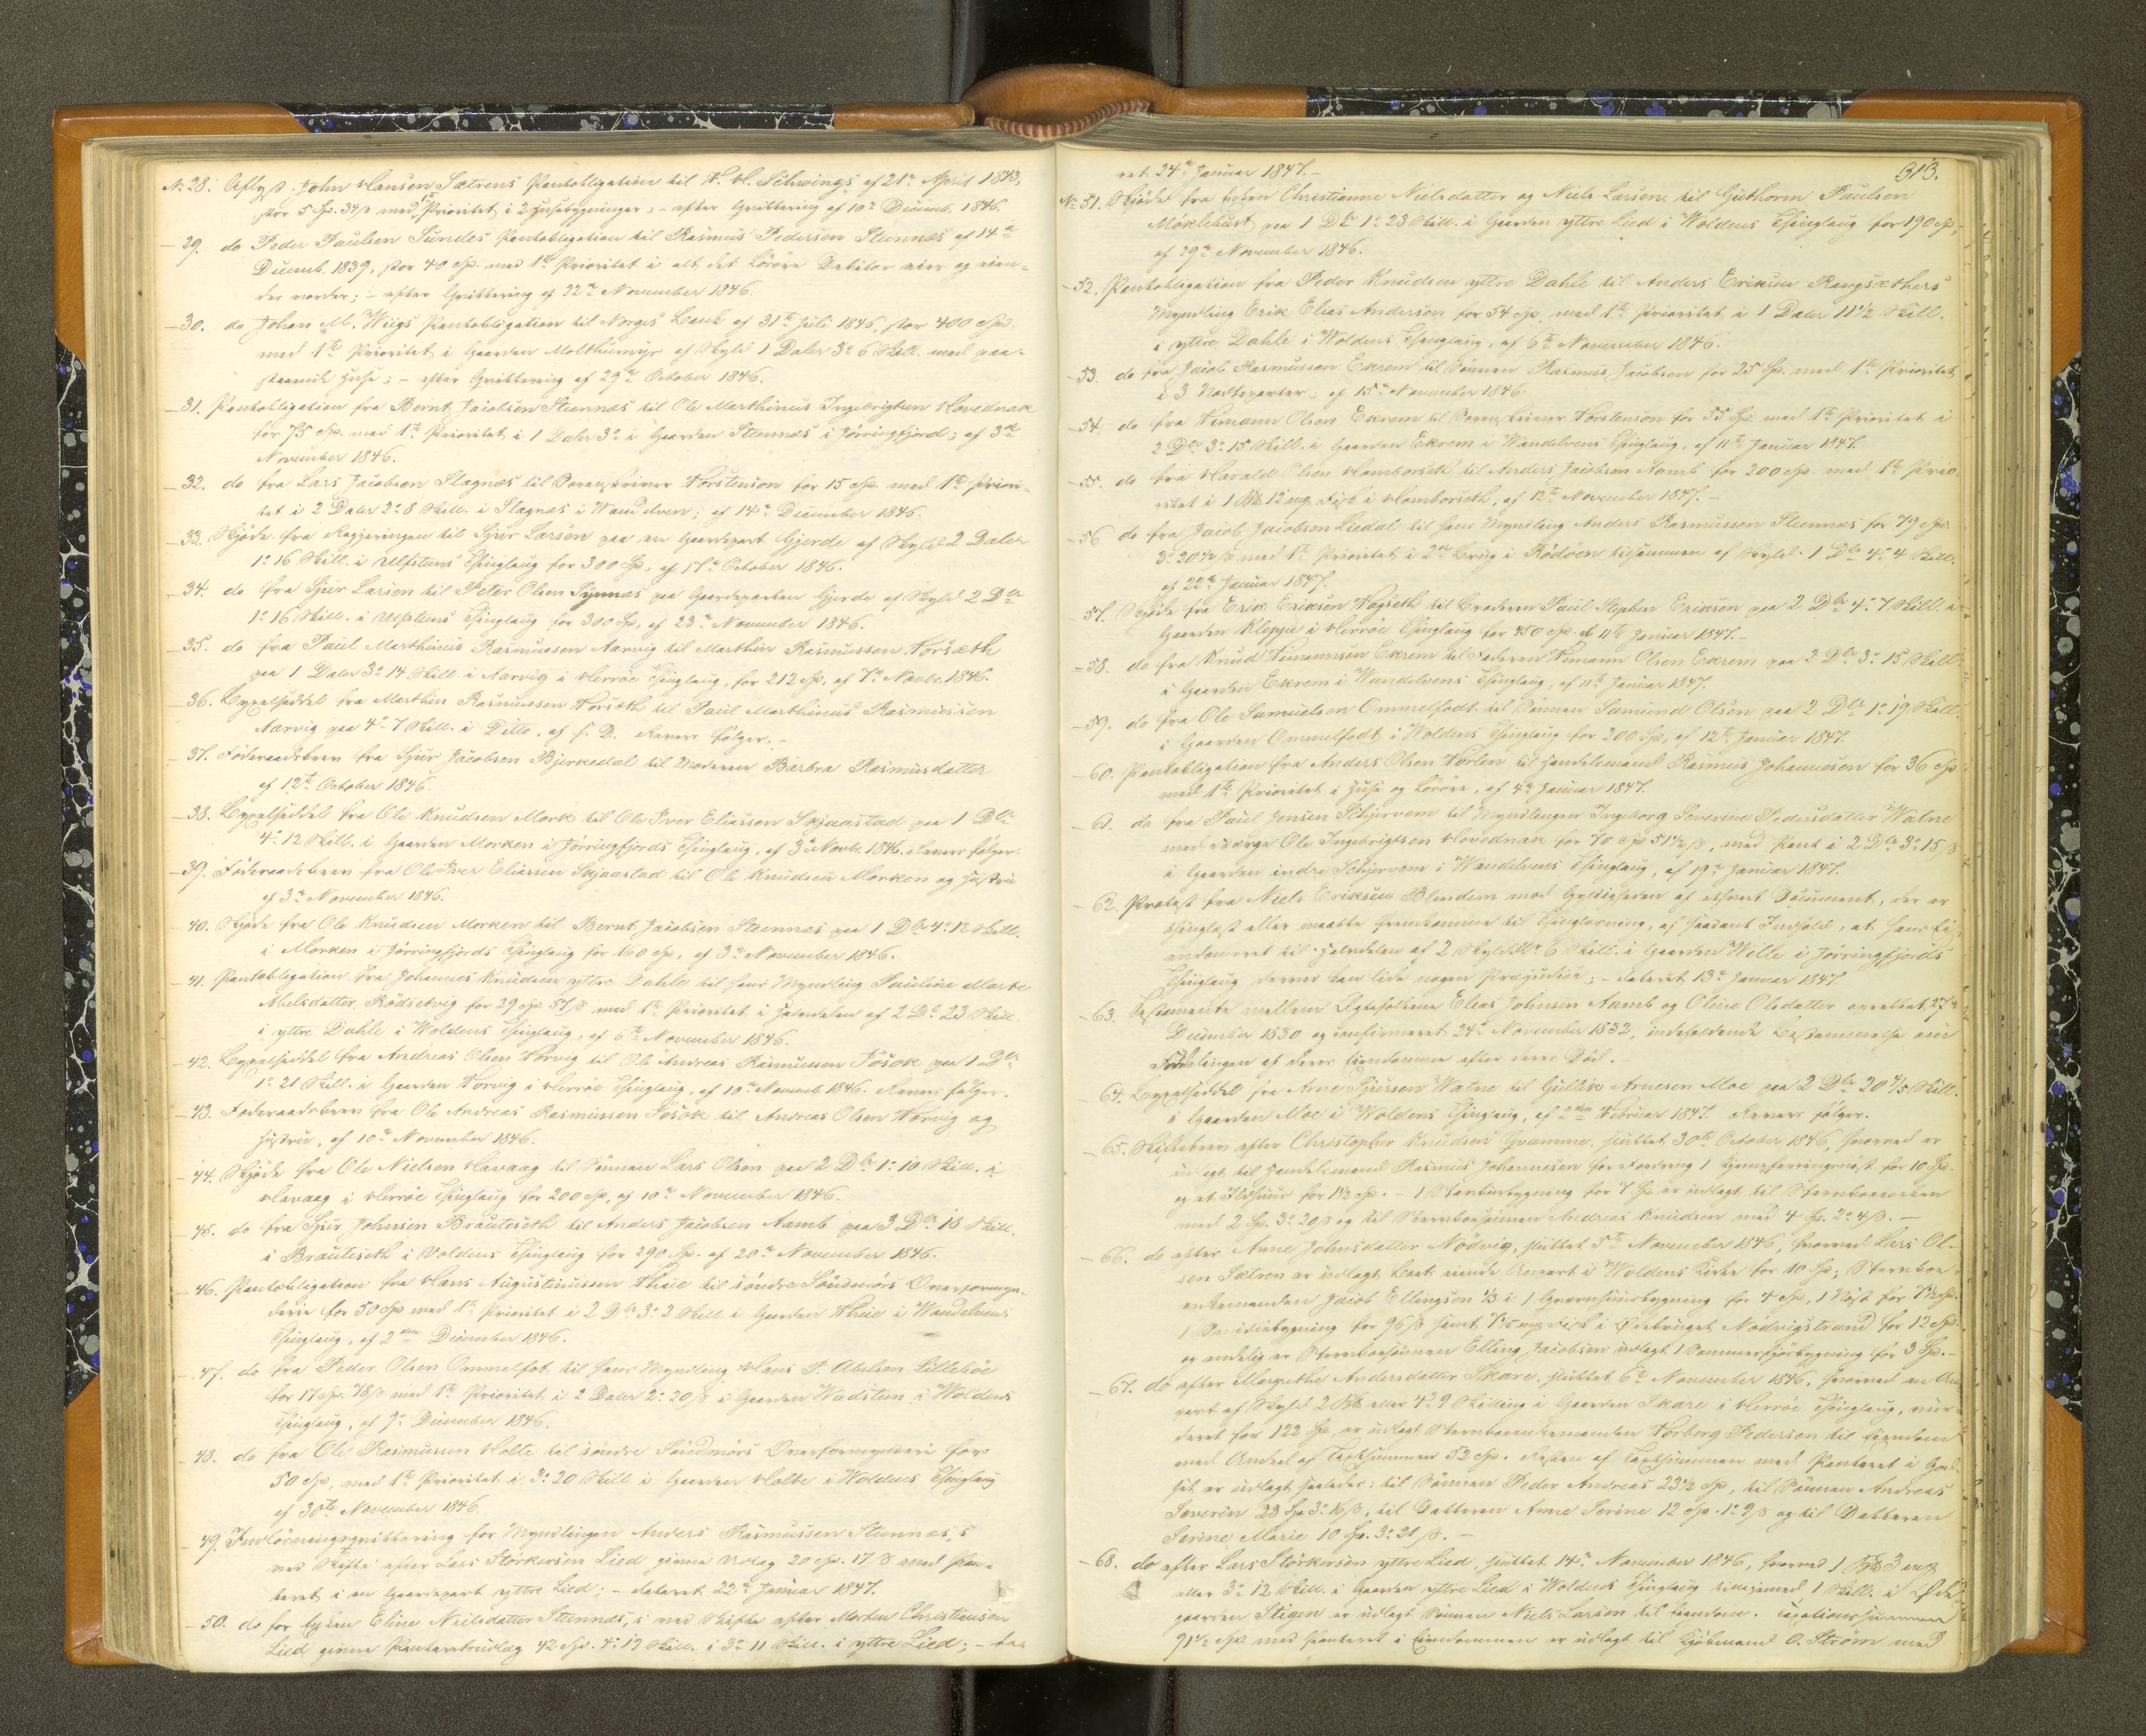 No 28. Aflyst John Hansen Sætrens Pantobligation til H. H. Schwings af 21de April 1843,
stor 5 Sp. 34 s med Prioritet i 2 Huusebygninger; - efter Qvittering af 10de Decemb. 1846.
- 29. do Peder Paulsen Sundes Pantobligation til Rasmus Pedersen Steennæs af 14de
Decemb. 1839, stor 40 Sp. med 1te Prioritet i alt det Lösöre Debitor eier og eien-
des vorder; - efter Qvittering af 22de November 1846.
- 30. do Johan M. Wiigs Pantobligation til Norges Bank af 31te Juli 1846, stor 400 Spd.
med 1te Prioritet i Gaarden Molthumyr af Skyld 1 Daler 3 6 Skill. med paa-
staaende Huse; - efter Qvittering af 29de October 1846.
- 31. Pantobligation fra Bernt Jacobsen Steennæs til Ole Marthinus Ingebrigtsen Hovednak
for 75 Sp. med 1te Prioritet i 1 Daler 3 i Gaarden Steennæs i Jörringfjord; af 3de
November 1846.
- 32. do fra Lars Jacobsen Slagnæs til Sorenskriver Thorstenson for 15 Sp. med 1te Priori-
tet i 2 Daler 2 8 Skill. i Slagnæs i Wandelven; af 14de December 1846.
- 33. Skjöde fra Regjeringen til Sjur Larsen paa en Gaardepart Gjerde af Skyld 2 Daler
1 16 Skill. i Ulfstens Thinglaug for 300 Sp, af 17de October 1846.
- 34. do fra Sjur Larsen til Peter Olsen Synnæs paa Gaardeparten Gjerde af Skyld 2 Dlr
1 16 Skill. i Ulfstens Thinglaug for 300 Sp, af 23de November 1846.
- 35. do fra Paul Marthinus Rasmussen Aarvig til Marthin Rasmussen Torsæth
paa 1 Daler 3 14 Skill. i Aarvig i Herröe Thinglaug, for 212 Sp, af 7de Novbr. 1846.
- 36. Bygselseddel fra Marthin Rasmussen Torsæth til Paul Marthinus Rasmussen
Aarvig paa 4 7 Skill. i Ditto, af s. D. Revers fölger. -
- 37. Föderaadsbrev fra Sjur Jacobsen Bjerkedal til Moderen Barbra Rasmusdatter
af 12te October 1846.
- 38. Bygselseddel fra Ole Knudsen Mork til Ole Iver Eliassen Skjaastad paa 1 Dlr
4 12 Skill. i Gaarden Morken i Jörringfjords Thinglaug, af 3de Novbr. 1846. Revers fölger.
- 39. Föderaadsbrev fra Ole Iver Eliassen Skjaastad til Ole Knudsen Morken og Hustru
af 3de November 1846.
- 40. Skjöde fra Ole Knudsen Morken til Bernt Jacobsen Steennæs paa 1 Dlr 4 12 Skill.
i Morken i Jörringfjords Thinglaug for 160 Sp, af 3de November 1846.
- 41. Pantobligation fra Johannes Knudsen yttre Dahle til hans Myndling Pauline Marte
Abelsdatter Rödsetvig for 29 Sp 57 s med 1te Prioritet i Halvdelen af 2 Dlr 23 Skill.
i yttre Dahle i Woldens Thinglaug, af 6te November 1846.
- 42. Bygselseddel fra Andreas Olsen Torvig til Ole Andreas Rasmussen Fösok paa 1 Dlr
1 21 Skill. i Gaarden Torvig i Herröe Thinglaug, af 10de Novemb. 1846. Revers fölger.
- 43. Föderaadsbrev fra Ole Andreas Rasmussen Fösok til Andreas Olsen Torvig og
Hustru, af 10de November 1846.
- 44. Skjöde fra Ole Nielsen Havaag til Sönnen Lars Olsen paa 2 Dlr 1 10 Skill. i
Havaag i Herröe Thinglaug for 200 Sp, af 10de November 1846.
- 45. do fra Sjur Johnsen Brauteseth til Anders Jacobsen Aamb paa 3 Dlr 18 Skill.
i Brauteseth i Voldens Thinglaug for 290 Sp. af 20de November 1846.
- 46. Pantobligation fra Hans Augustinussen Thue til söndre Söndmörs Overformyn-
derie for 50 Sp med 1te Prioritet i 2 Dlr 3 2 Skill i Gaarden Thue i Wandelvens
Thinglaug, af 2den December 1846.
- 47. do fra Peder Olsen Ommelfot til hans Myndling Hans P. Abelsen Lilleböe
for 17 Sp. 78 s med 1te Prioritet i 2 Daler 2 20 s i Gaarden Wadsteen i Woldens
Thinglaug, af 9de December 1846.
- 48. do fra Ole Rasmussen Holte til söndre Söndmörs Overformynderi for
50 Sp, med 1te Prioritet i 3 20 Skill i Gaarden Holte i Woldens Thinglaug
af 30te November 1846.
- 49. Indlösningsqvittering for Myndlingen Anders Rasmussen Steennæs,
ved Skifte efter Lars Störkersen Lied givne Udlæg 20 Sp. 17 s med Pan-
teret i en Gaardepart yttre Lied; - dateret 22de Januar 1847.
- 50. do for Enken Eline Nielsdatter Steennæs, ved Skifte efter Morten Christensen
Lied givne Panteretsudlæg 42 Sp. 4 19 Skill. i 3 11 Skill. i yttre Lied; - da-
313.
ret 24de Januar 1847. -
No 51. Skjöde fra Enken Christianne Nielsdatter og Niels Larsen til Guthorm Paulsen
Mörklebust paa 1 Dlr 1 23 Skill. i Gaarden yttre Lied i Woldens Thinglaug for 190 Sp,
af 29de November 1846.
- 52. Pantobligation fra Peder Knudsen yttre Dahle til Anders Eriksen Rangsæthers
Myndling Erik Elias Andersen for 54 Sp. med 1te Prioritet i 1 Daler 11 1/2 Skill.
i yttre Dahle i Woldens Thinglaug, af 6te November 1846.
- 53. do fra Jacob Rasmussen Ekrem til Sönnen Rasmus Jacobsen for 25 Sp. med 1te Prioritet
i 3 Nodteparter; af 15de November 1846.
- 54. do fra Timann Olsen Ekrem til Sorenskriver Thorstenson for 35 Sp. med 1te Prioritet i
2 Dlr 3 15 Skill. i Gaarden Ekrem i Wandelvens Thinglaug, af 11te Januar 1847.
- 55. do fra Harald Olsen Homborseth til Anders Jacobsen Aamb for 200 Sp. med 1te Prio-
ritet i 1 Vog 12 mrk Fisk i Homborseth, af 12te November 1847. -
- 56 do fra Jacob Jacobsen Liedal til hans Myndling Anders Rasmussen Steennæs for 79 Sp.
3 20 1/2 s med 1te Prioritet i 2de Brug i Rödöen tilsammen af Skyld 1 Dlr 4 4 Skill.
af 22de Januar 1847.
- 57. Skjöde fra Erik Eriksen Hogseth til Broderen Paul Stephen Eriksen paa 2 Dlr 4 7 Skill. i
Gaarden Kleppe i Herröe Thinglaug for 450 Sp. af 11te Januar 1847. -
- 58. do fra Knud Timannsen Ekrem til Faderen Timann Olsen Ekrem paa 2 Dlr 3 15 Skill.
i Gaarden Ekrem i Wandelvens Thinglaug, af 11te Januar 1847.
- 59. do fra Ole Samuelsen Ommelfodt til Sönnen Samund Olsen paa 2 Dlr 1 19 Skill.
i Gaarden Ommelfodt i Woldens Thinglaug for 200 Sp, af 12te Januar 1847.
- 60. Pantobligation fra Anders Olsen Hörlen til Handelsmand Rasmus Johannesen for 36 Sp
med 1te Prioritet i Huse og Lösöre, af 4de Januar 1847.
- 61. do fra Paul Jensen Schjervem til Myndlingen Ingeborg Severine Pedersdatter Watne
med Værge Ole Ingebrigtsen Hovednak for 70 Sp 51 1/2 s, med Pant i 2 Dlr 3 15 s
i Gaarden indre Schjervem i Wandelvens Thinglaug, af 19de Januar 1847.
- 62. Protest fra Niels Eriksen Blindem mod Gyldigheden af ethvert Document, der er
thinglæst eller maatte fremkomme til Thinglæsning, af saadant Indhold, at hans Ei-
endomsret til Halvdelen af 2 Skylddlr 6 Skill. i Gaarden Welle i Jörringfjords
Thinglaug derved kan lide nogen Præjudice; - dateret 13de Januar 1847.
- 63. Testamente mellem Ægtefolkene Elias Johnsen Aamb og Oline Olsdatter oprettet 27de
December 1830 og confirmeret 24de November 1832, indeholdende Bestemmelse om
Fordelingen af deres Eiendomme efter deres Död. -
- 64. Bygselseddel fra Arne Sjursen Watne til Gullik Arnesen Moe paa 2 Dlr 20 4/5 Skill.
i Gaarden Moe i Woldens Thinglaug, af 2den Februar 1847. Revers fölger.
- 65. Skiftebrev efter Christopher Knudsen Gramme, sluttet 30te October 1846, hvorved er
udlagt til Handelsmand Rasmus Johannesen for Fordring 1 for 10 Sp.
og et Ildhuus for 1 1/2 Sp. - 1 Stuebygning for 7 Sp er udlagt til Stervboeenken
med 2 Sp. 3 20 s og til Stervboesönnen Andreas Knudsen med 4 Sp. 2 4 s. -
- 66. do efter Anne Johnsdatter Nödvig, sluttet 5te November 1846, hvorved Lars Ol-
sen Sætren er udlagt Boets eiende Anpart i Woldens Kirke for 10 Sp; Stervboe-
enkemanden Jacob Ellingsen 1/3 i 1 Qværnhuusbygning for 4 Sp, 1 Nöst for 7 1/2 Sp.
1 for 96 s samt Fisk i Ødebruget Nödvigstrand for 12 Sp.
og endelig er Stervboesönnen Elling Jacobsen udlagt 1 Sommerfjösbygning for 3 Sp. -
- 67. do efter Margrethe Andersdatter Skare, sluttet 6te November 1846, hvorved en An-
part af Skyld 2 Vog eller 4 9 Skilling i Gaarden Skare i Herröe Thinglaug, vur-
deret for 122 Sp, er udlagt Stervboeenkemanden Torberg Pedersen til Eiendom
med Andeel af Taxtsummen 52 Sp. Resten af Taxtsummen med Panteret i God-
set er udlagt saaledes: til Sönnen Peder Andreas 23 1/2 Sp, til Sönnen Andreas
Severin 23 Sp 3 16 s, til Datteren Anne Serine 12 Sp. 1 9 s og til Datteren
Serine Marie 10 Sp. 3 21 s. -
- 68. do efter Lars Störkersen yttre Lied, sluttet 14de November 1846, hvorved 1 Vog 3 mrk
eller 3 12 Skill. i Gaarden yttre Lied i Woldens Thinglaug tilligemed 1 Skill. i Øde-
gaarden Stigen er udlagt Sönnen Niels Larsen til Eiendom. Taxationssummen
91 1/2 Sp. med Panteret i Eiendommen er udlagt til Kjöbmand O. Ström med